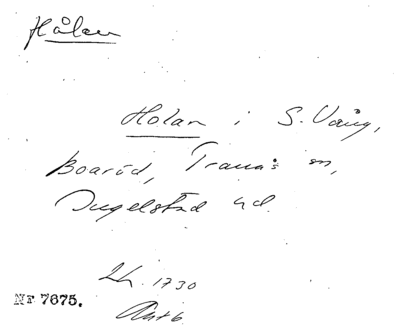 Hålan
Holan i S. Väng,
Boaröd, Tranås sn,
Ingelstad hd.
Lk. 1730
Nr 7675.